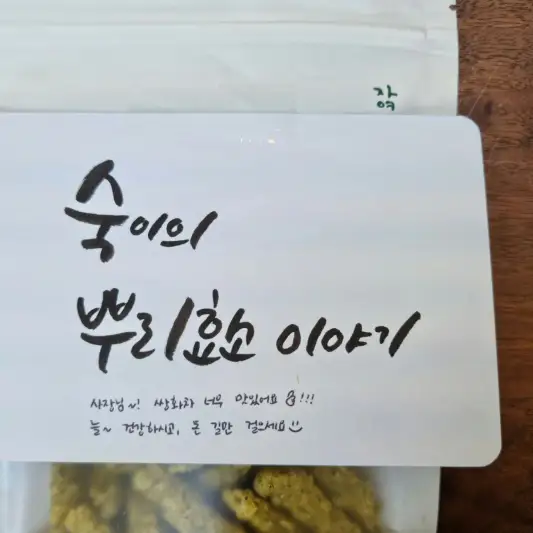 자연
숙이의
뿌리효소 이야기
사장님~! 쌍화차 너무 맛있어요!!!
늘~ 건강하시고, 돈 길만 걸으세요